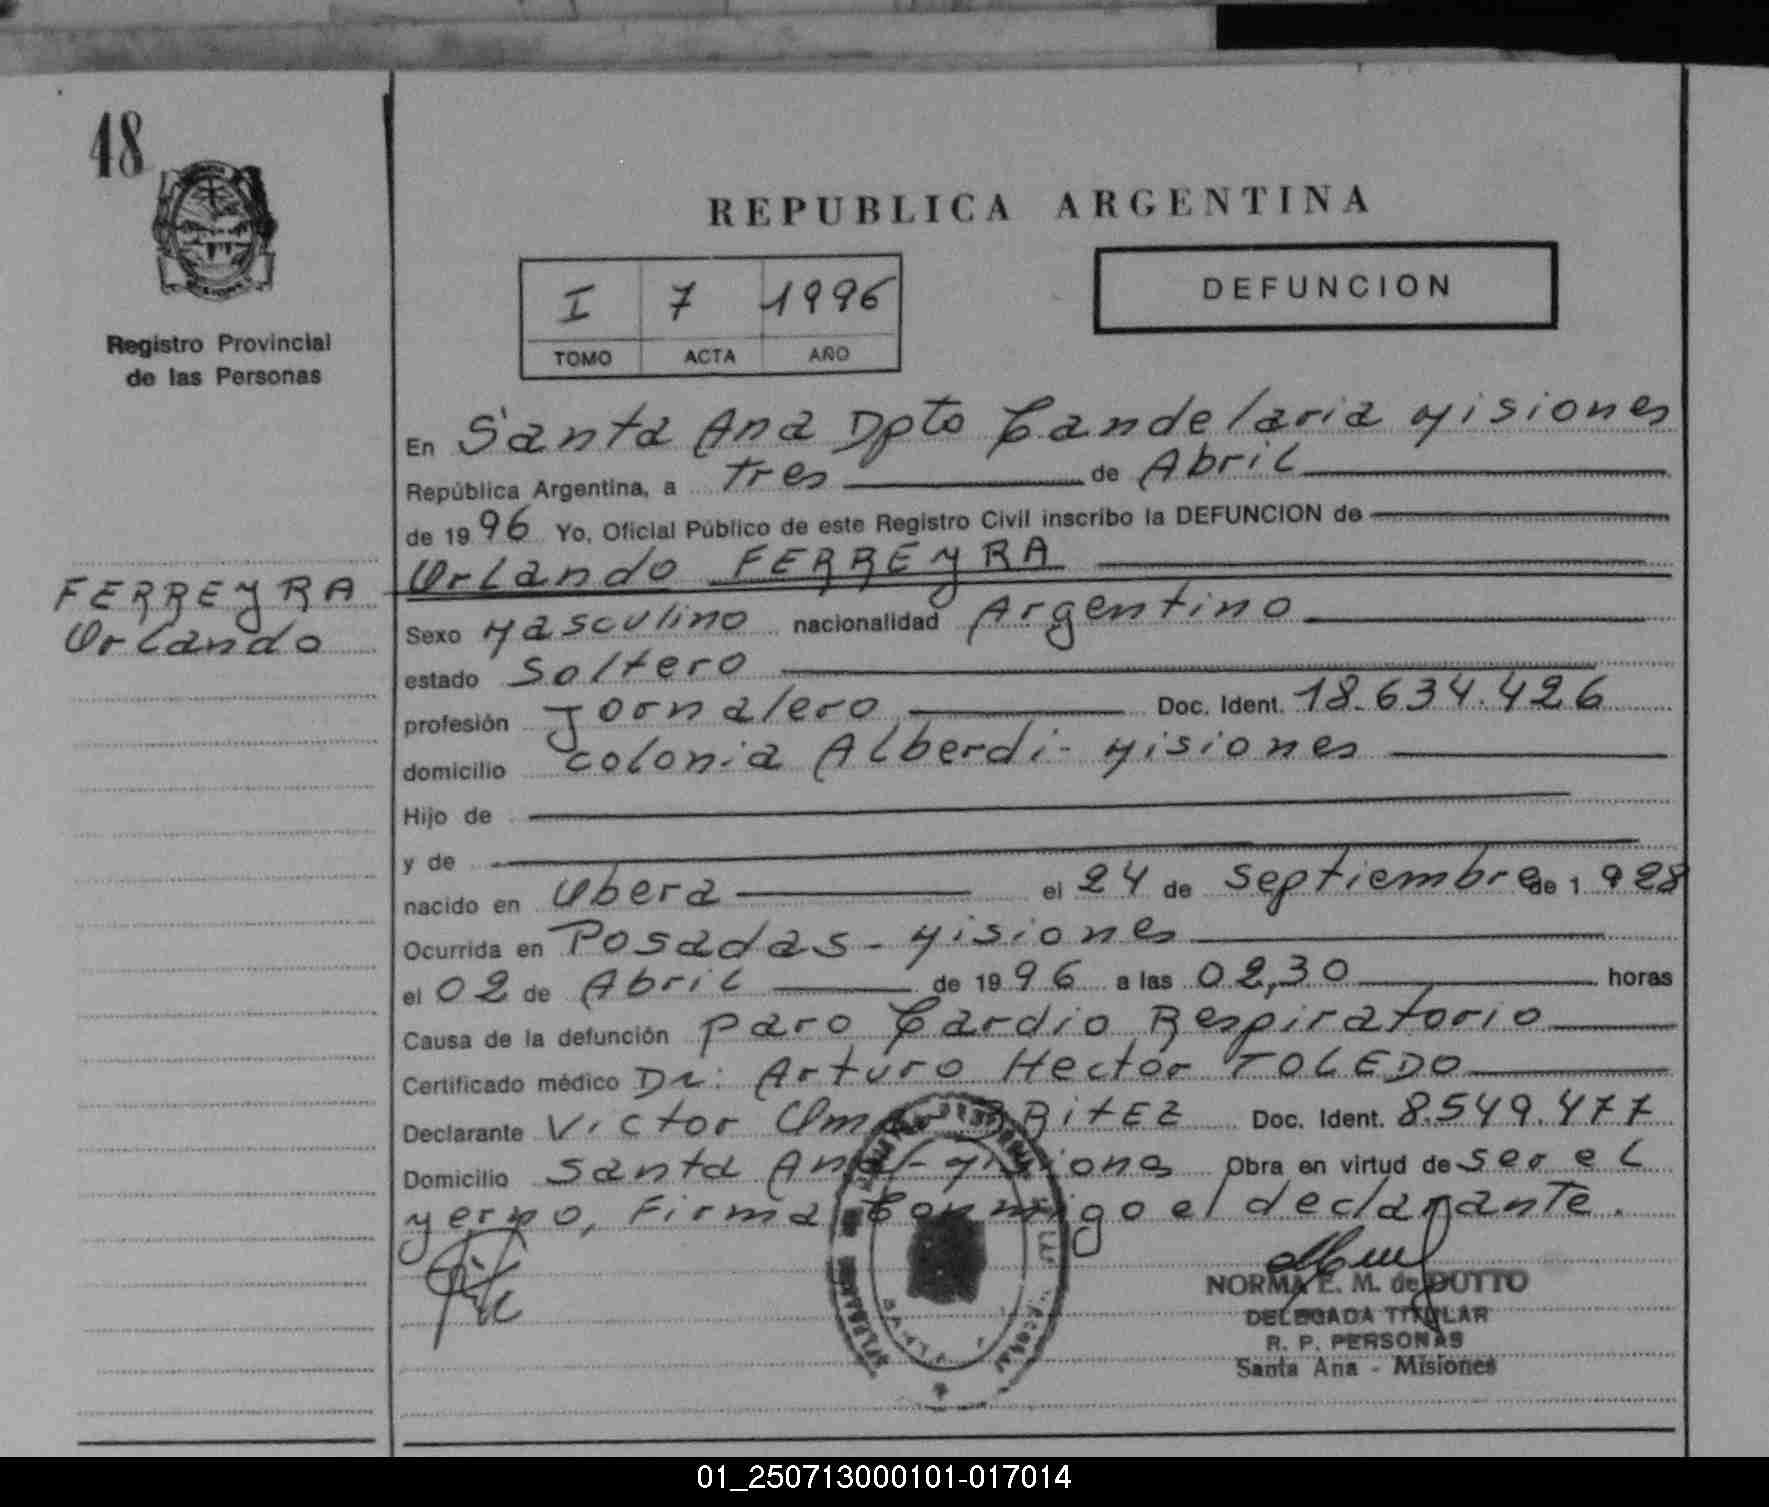 48
Registro Provincial
de las Personas
FERREYRA
Orlando
REPUBLICA ARGENTINA
I 7 1996
TOMO ACTA AÑO
DEFUNCION
En Santa Ana Dpto Candelaria Misiones
República Argentina, a tres de Abril
de 1996 Yo, Oficial Público de este Registro Civil inscribo la DEFUNCION de
Orlando FERREYRA
Sexo Masculino nacionalidad Argentino
estado Soltero
profesión Jornalero Doc. Ident. 18.634.426
domicilio colonia Alberdi - Misiones
Hijo de
y de
nacido en Obera el 24 de Septiembre de 1928
Ocurrida en Posadas - Misiones
el 02 de Abril de 1996 a las 02,30 horas
Causa de la defunción paro Cardio Respiratorio
Certificado médico Dr: Arturo Hector TOLEDO
Declarante Victor Omar BRITEZ Doc. Ident. 8.549.477
Domicilio Santa Ana - Misiones Obra en virtud de ser el
yerno, Firma Conmigo el declarante.
NORMA E. M. de DUTTO
DELEGADA TITULAR
R. P. PERSONAS
Santa Ana - Misiones
01_250713000101-017014